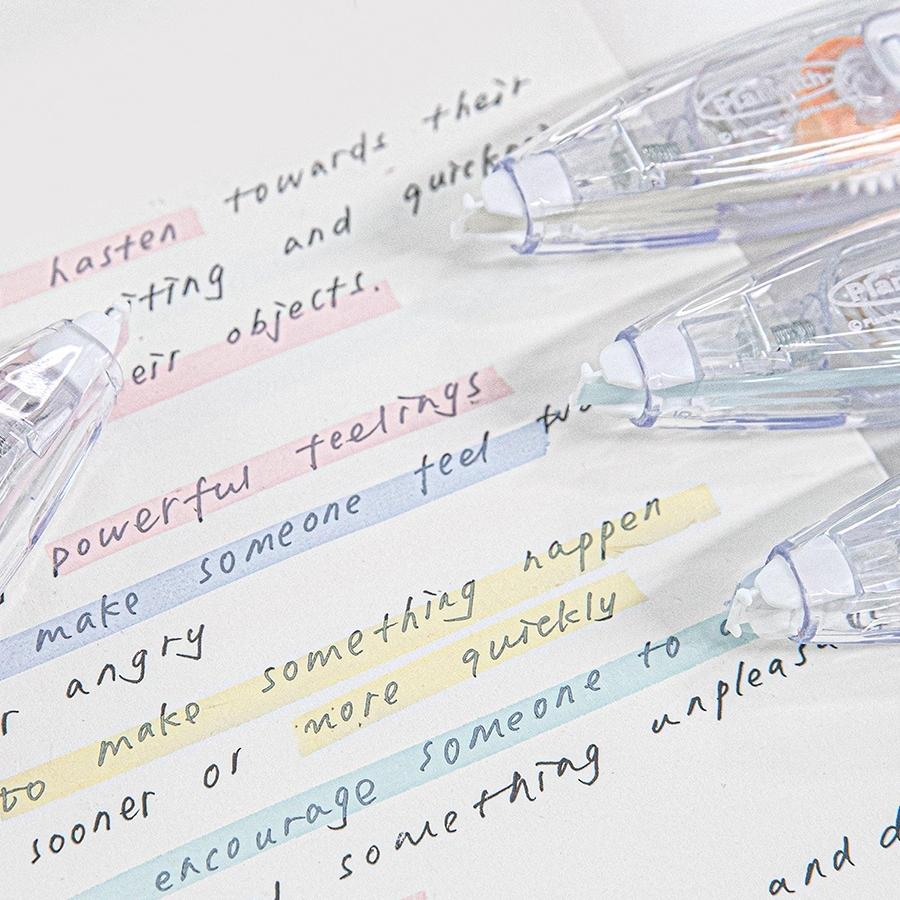 hasten towards their
and quickly
objects.
powerful feelings
make someone feel
angry
to make something happen
sooner or more quickly
encourage someone to
something unpleasa
and